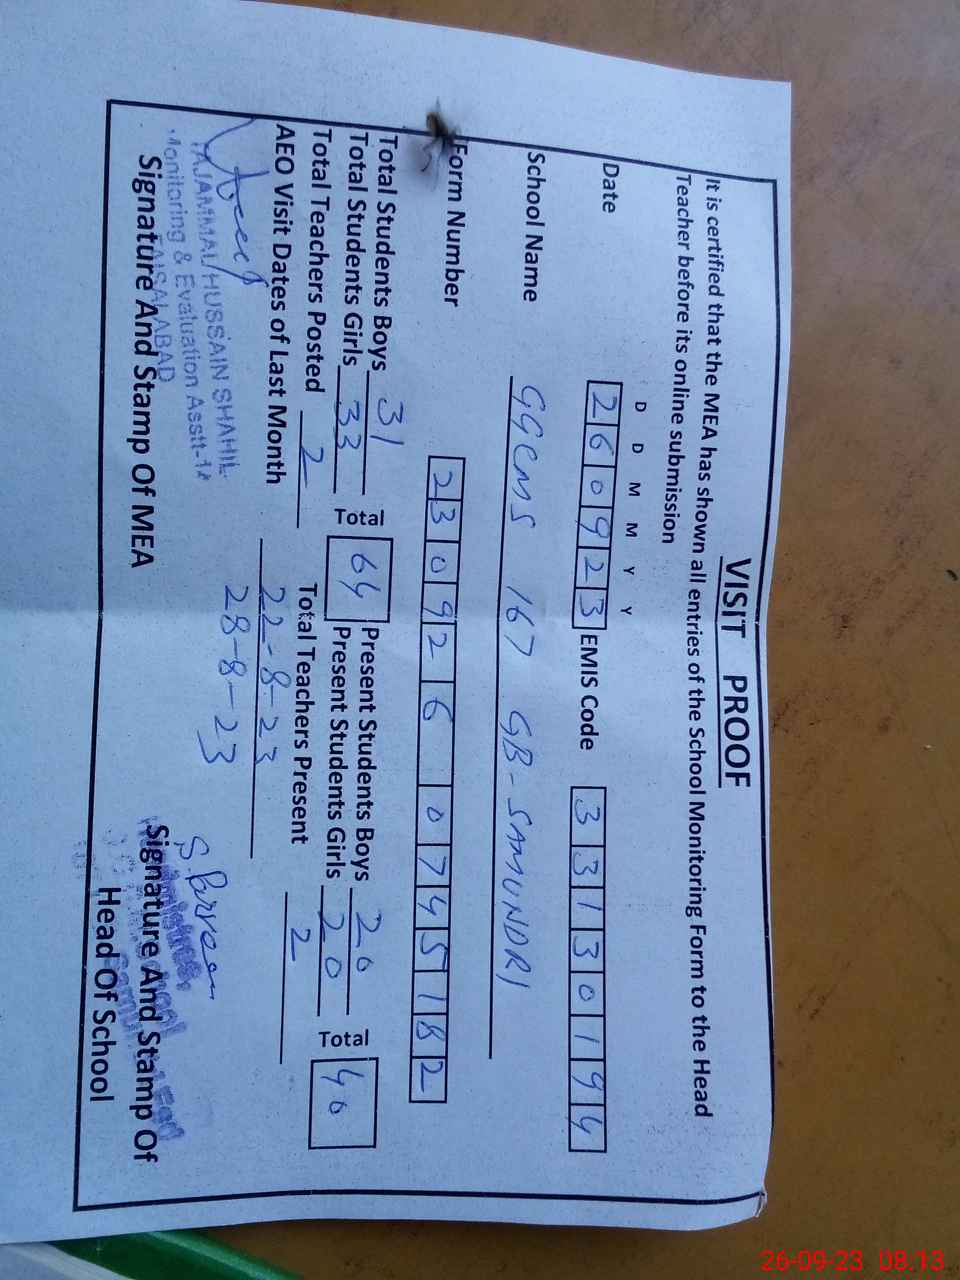 VISIT PROOF
It is certified that the MEA has shown all entries of the School Monitoring Form to the Head
Teacher before its online submission
D D M M Y Y
Date 260923 EMIS Code 33130194
School Name GGCMS 167 GB-SAMUNDRI
Form Number 230926 0745182
Total Students Boys 31 Total 64 Present Students Boys 20 Total 40
Total Students Girls 33 Present Students Girls 20
Total Teachers Posted 2 Total Teachers Present 2
AEO Visit Dates of Last Month 22-8-23
28-8-23
S. Parveen
TAJAMMAL HUSSAIN SHAHIL
Monitoring & Evaluation Asstt-1A
FAISALABAD
Signature And Stamp Of MEA
Signature And Stamp Of
Head Of School
26-09-23 08:13